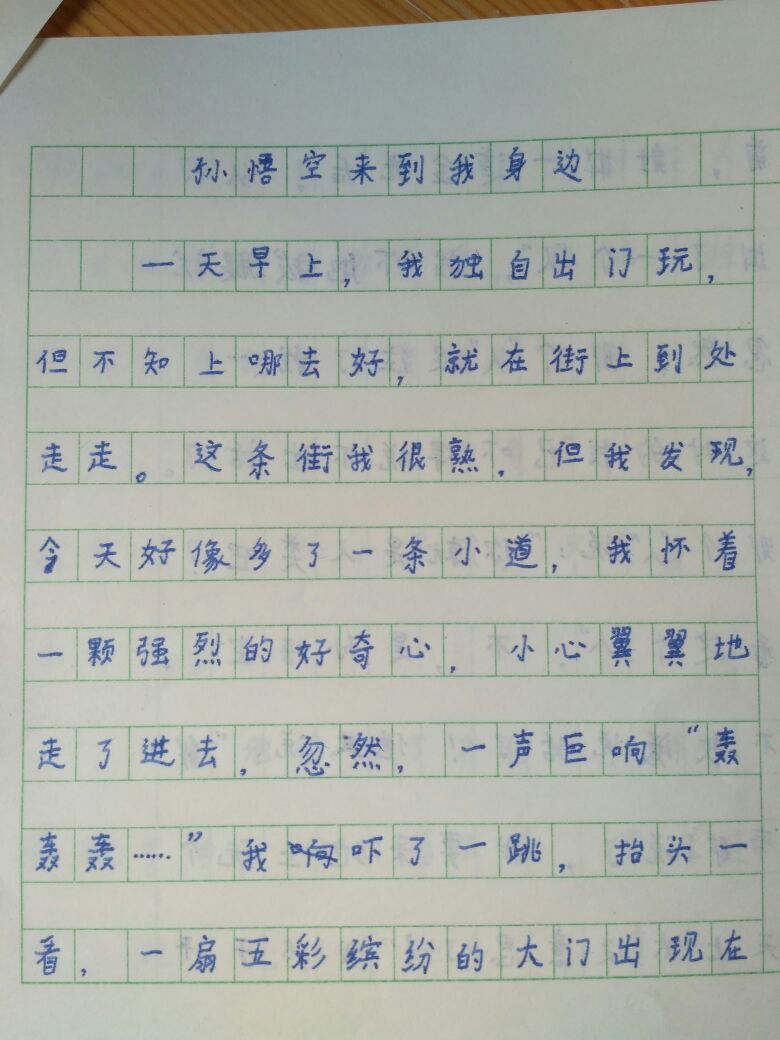 孙悟空来到我身边
一天早上，我独自出门玩，
但不知上哪去好，就在街上到处
走走。这条街我很熟．但我发现，
今天好像多了一条小道，我怀着
一颗强烈的好奇心，小心翼翼地
走了进去，忽然，一声巨响“轰
轰轰……”我吓了一跳，抬头一
看，一扇五彩缤纷的大门出现在